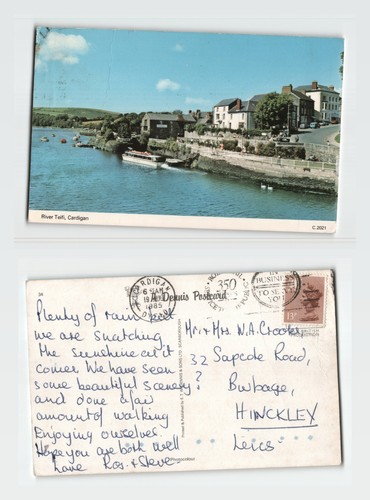 River Teifi, Cardigan
C.2021
CARDIGAN
6 15AM
1985
DYFED
350
IN
BUSINESS
TO SERVE
YOU
A Dennis Postcard
Plenty of rain but
we are snatching
the sunshine as it
comes. We have seen
some beautiful scenery
and done a fair
amount of walking
Enjoying ourselves
Hope you are both well
Love Ros. & Steve
Mr. & Mrs. W.A. Crooks,
32 Sapcote Road,
Burbage,
HINCKLEY
Leics